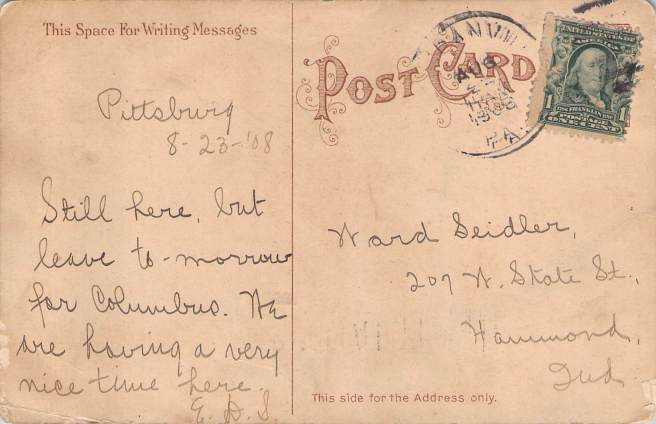 This Space For Writing Messages
Pittsburg
8-23-'08
Still here, but
leave to-morrow
for Columbus. We
are having a very
nice time here.
E. D. S.
POST CARD
AUG
1908
PA.
UNITED STATES OF
AMERICA
1 FRANKLIN 1
POSTAGE
ONE CENT
Ward Seidler,
207 W. State St.,
Hammond,
Ind
This side for the Address only.